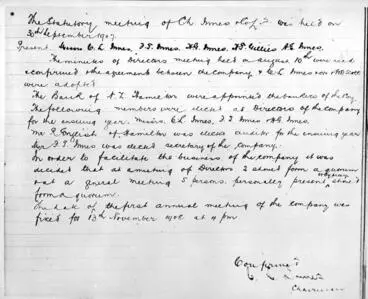 The Statutory meeting of C.L. Innes & Co Ltd was held on
30th September 1907.
Present Messrs C. L. Innes, F. S. Innes, H. A. Innes, F. S. Gillies A. E. Innes.
The minutes of Directors meeting held on august 10th were read
& confirmed & the agreements between the company & C. L. Innes
were adopted
The Bank of N. Z. Hamilton were appointed the bankers of the Coy
The following members were elected as Directors of the company
for the ensuing year. Messrs. C. L. Innes, F. S. Innes
Mr R. English of Hamilton was elected auditor for the ensuing year
Mr F. S. Innes was elected secretary of the company.
In order to facilitate the business of the company it was
decided that at a meeting of Directors 2 should form a quorum
& at a general meeting 5 persons personally present should
form a quorum.
The date of the first annual meeting of the company was
fixed for 13th November 1908 at 4 pm
Confirmed
Chairman